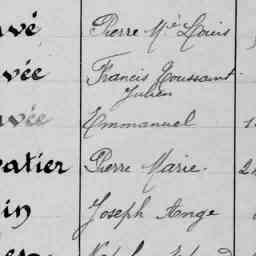 vé Pierre Mie Louis
vée Francis Toussaint
Julien
vée Emmanuel
atier Pierre Marie.
in Joseph Ange